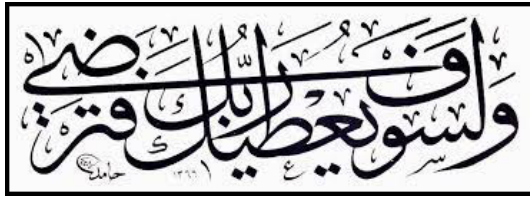 ولسوف يعطيك ربك فترضى
حامد ١٣٦٩